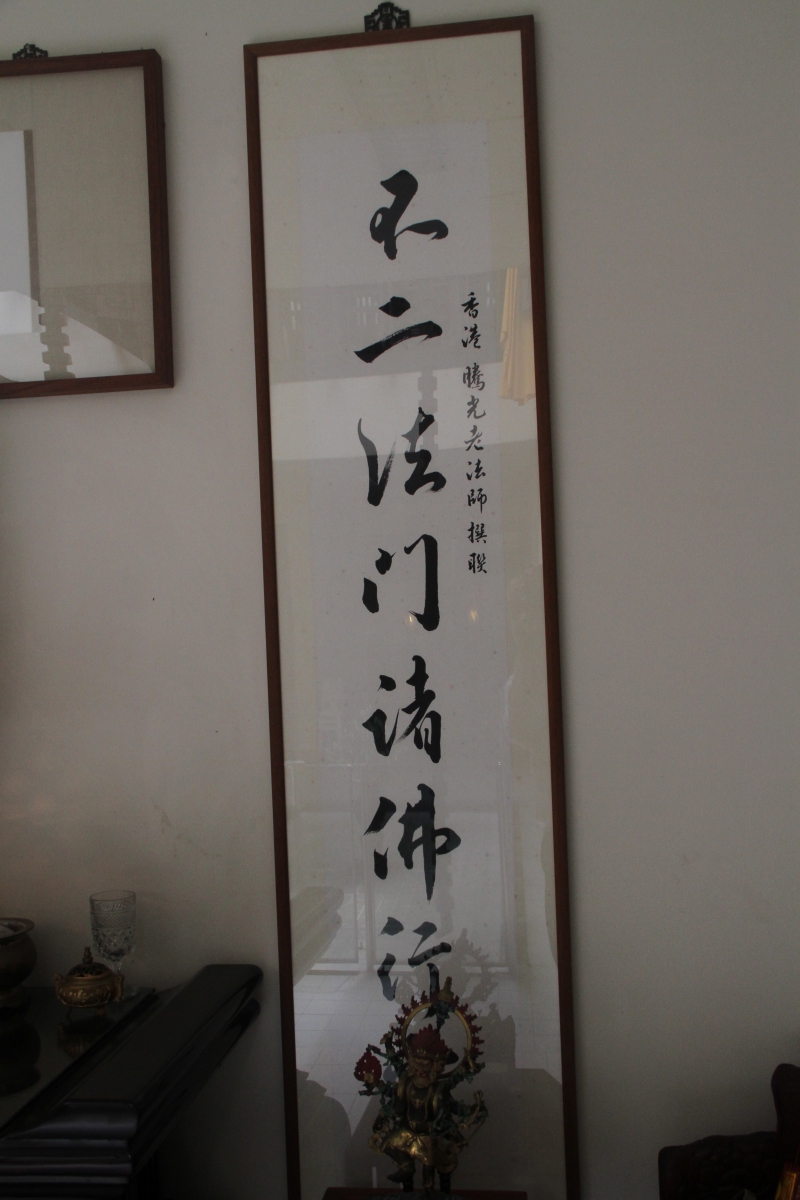 香港 騰光老法師撰聯
不二法门诸佛行